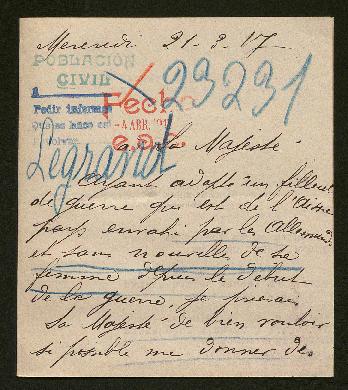 Mercredi 21-3-17-
POBLACIÓN
CIVIL
23231
Pedir informes
Fecho
-4 ABR. 191
Legrand
a sa Majesté
Ayant adopté un filleul
de guerre qui est de l'Aisne
pays envahi par les Allemands
et sans nouvelles de sa
femme depuis le début
de la guerre, je prierais
Sa Majesté de bien vouloir
si possible me donner des